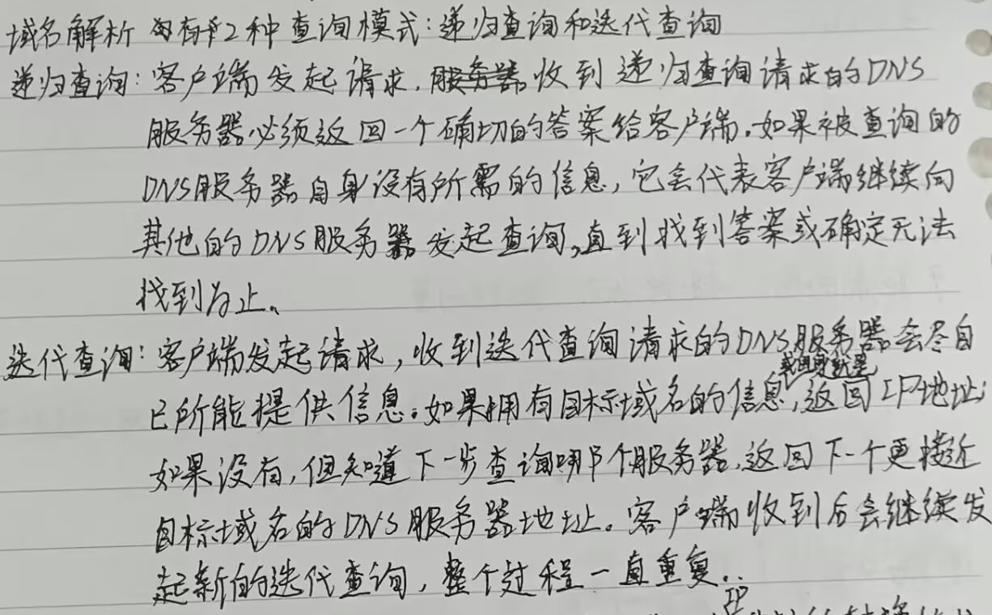 域名解析有2种查询模式:递归查询和迭代查询
递归查询:客户端发起请求,服务器收到递归查询请求的DNS
服务器必须返回一个确切的答案给客户端。如果被查询的
DNS服务器自身没有所需的信息,它会代表客户端继续向
其他的DNS服务器发起查询,直到找到答案或确定无法
找到为止。
迭代查询:客户端发起请求,收到迭代查询请求的DNS服务器会尽自
己所能提供信息。如果拥有目标域名的信息,返回IP地址;
如果没有,但知道下一步查询哪个服务器,返回下一个更接近
目标域名的DNS服务器地址。客户端收到后会继续发
起新的迭代查询,整个过程一直重复..
IP